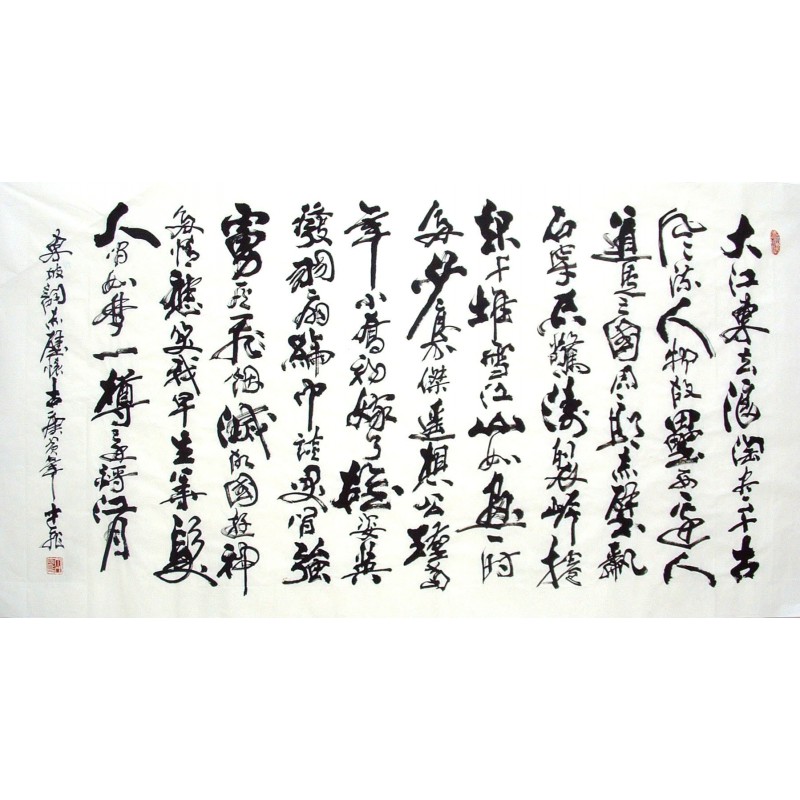 大江東去浪淘盡千古
風流人物故壘西邊人
道是三國周郎赤壁亂
石穿空驚濤裂岸捲
起千堆雪江山如畫一時
多少豪傑遙想公瑾當
年小喬初嫁了雄姿英
發羽扇綸巾談笑間強
虜灰飛烟滅故國遊神
多情應笑我早生華髮
人間如夢一樽還酹江月
東坡詞赤壁懷古庚寅年